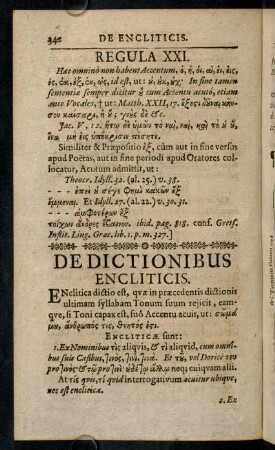 342 DE ENCLITICIS.
REGULA XXI.
Hæc omnino non habent Accentum, ὁ, ἡ, οἱ, αἱ, ἐν, εἰς,
ἐς, ἐκ, ἐξ, ὡς, id est, ut: ὐ, ὐκ, ὐχ. In fine tamen
sententiæ semper dicitur ὔ cum Accentu acuto, etiam
ante Vocales, ut: Matth. XXII, 17. ἔξεςι δῦναι κῆν-
σον καίσαρι, ἢ ὔ; γνὺς δὲ &c.
Jac. V, 12. ἤτω δὲ ὑμῶν τὸ ναὶ, ναὶ, καὶ τὸ ὒ ὔ,
ἵνα μὴ εἰς ὑπόκρισιν πέσητε.
Similiter & Præpositio ἐξ, cùm aut in fine versus
apud Poëtas, aut in fine periodi apud Oratores collo-
catur, Acutum admittit, ut:
Theocr. Idyll. 32. (al. 25.) v. 38.
- - - ἐπεὶ ὐ σέγε φημὶ κακῶν ἒξ
ἔμμεναι. Et Idyll. 27. (al. 22.) v. 30. 31.
- - - ἀμφοτέρων ἒξ
τοίχων ἄνδρες ἔβαινον. ibid. pag. 318. conf. Gretf.
Instit. Ling. Græc. lib. 1. p. m. 327.]
DE DICTIONIBUS
ENCLITICIS.
Enclitica dictio est, quæ in præcedentis dictionis
ultimam syllabam Tonum suum rejicit, eam-
que, si Toni capax est, suô Accentu acuit, ut: σῶμά
μυ, ἄνθρωπός τις, θνητός ἐςι.
ENCLITICÆ sunt:
1. Ex Nominibus τὶς aliqvis, & τὶ aliqvid, cum omni-
bus suis Casibus, τινὸς, τινὶ, τινὰ. Et τῦ, vel Doricè τευ
pro τινὸς & τῷ pro τινὶ
At τίς qvis, τί quid interrogativum acuitur ubique,
nec est enclitica.
2. Ex